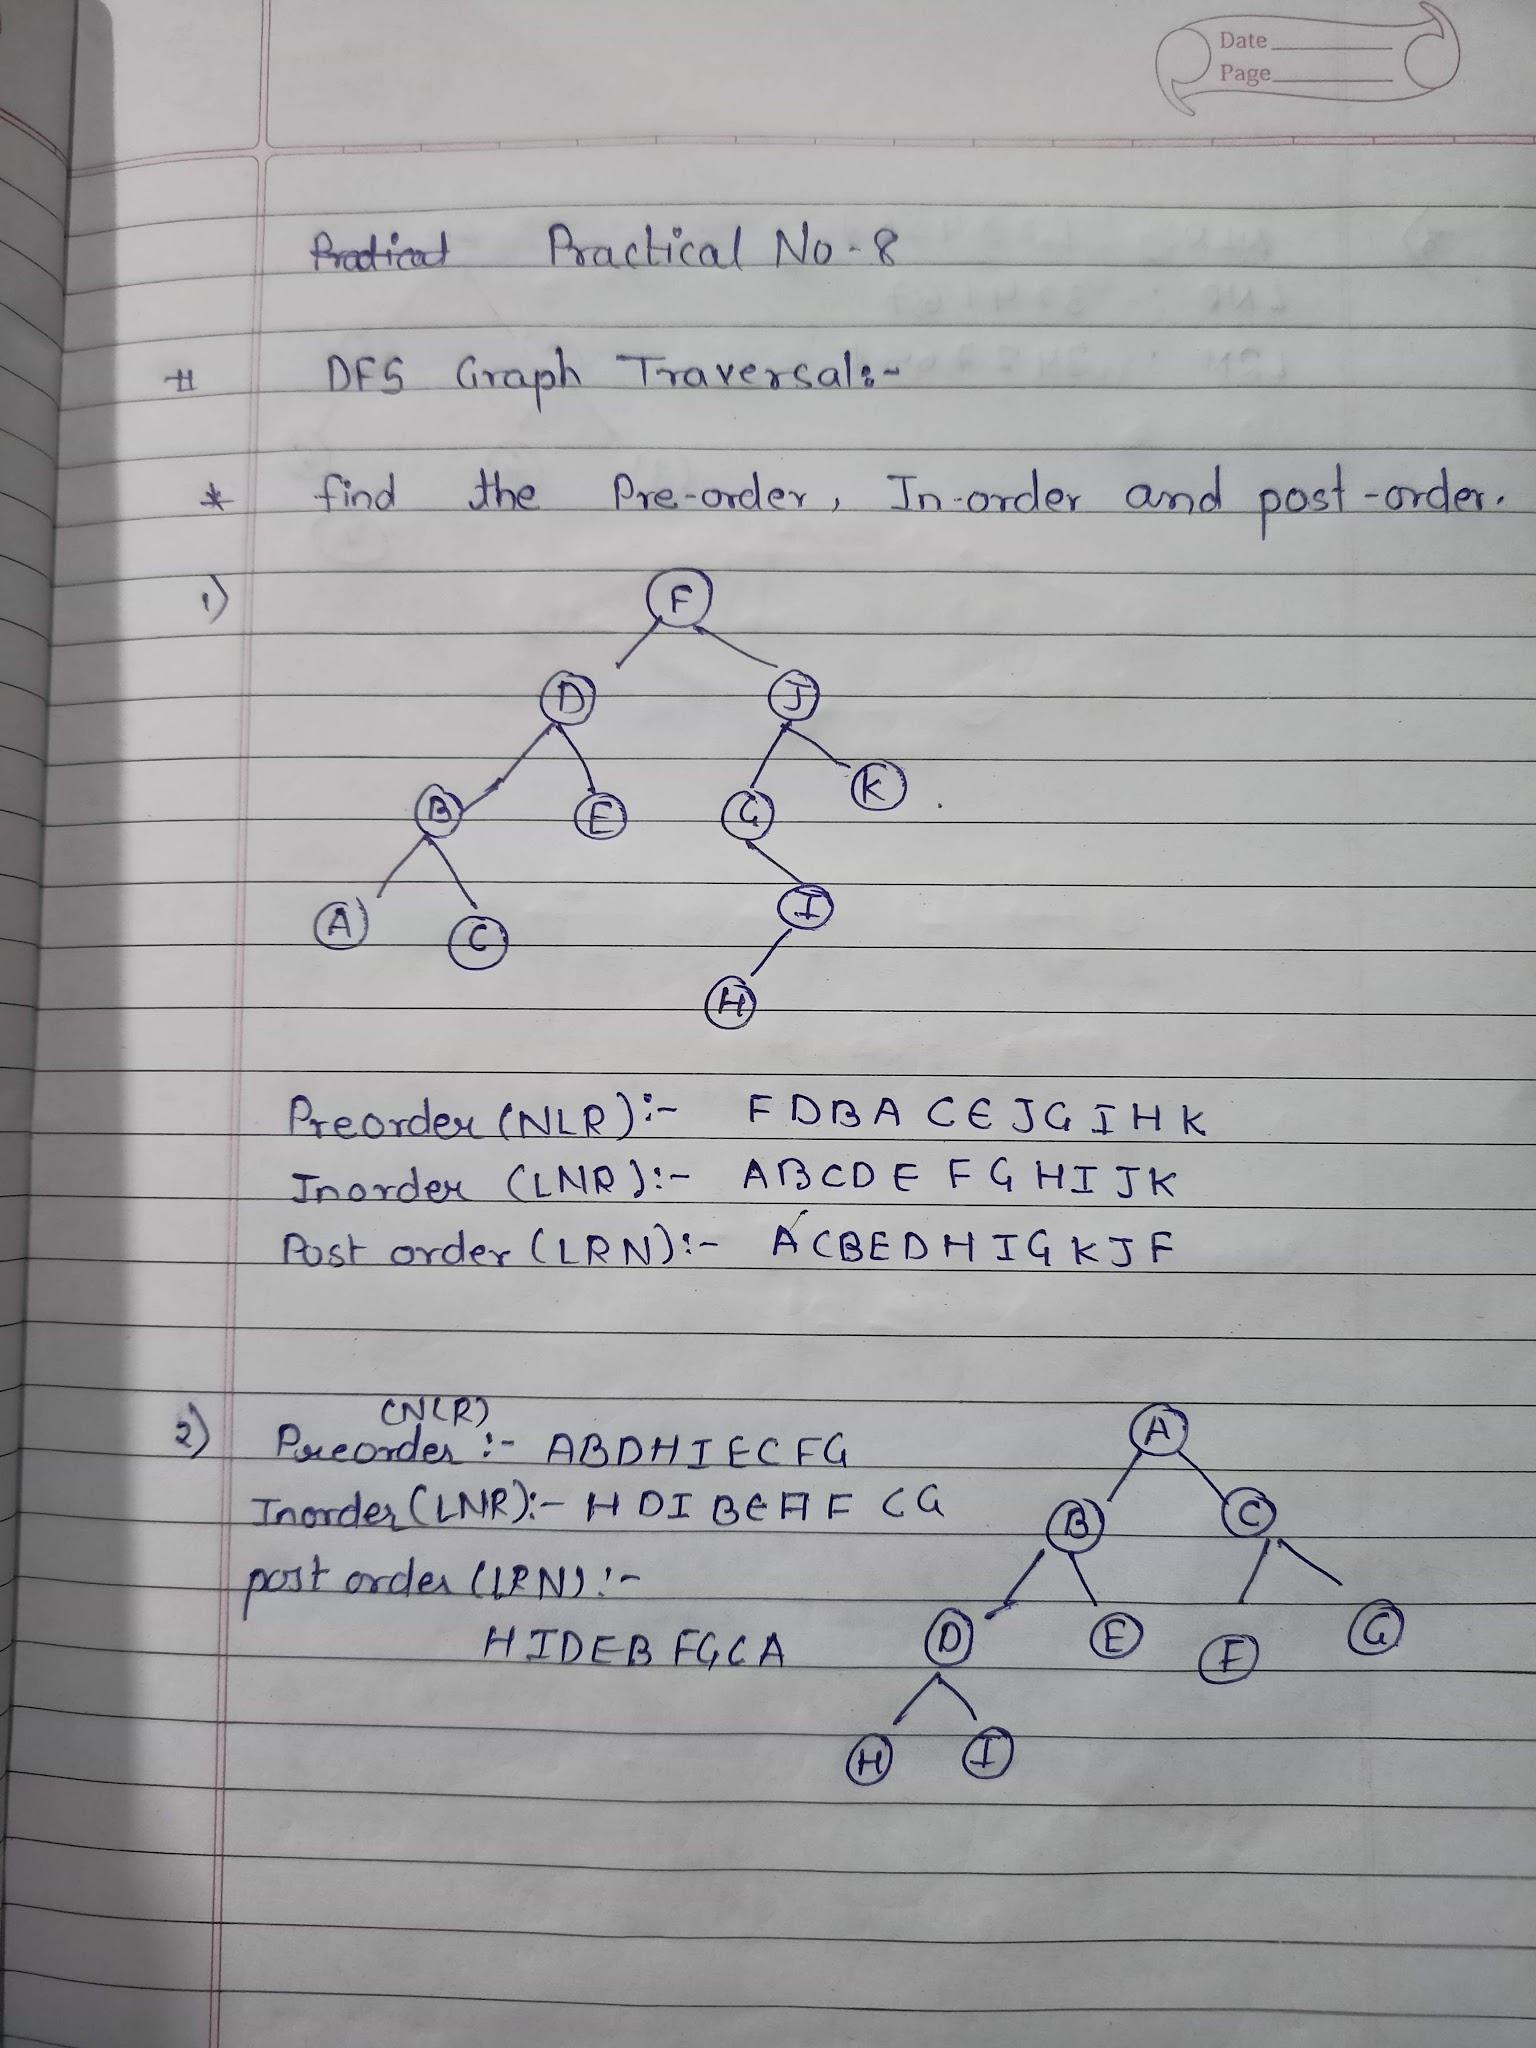 Date
Page
Practical Practical No-8
# DFS Graph Traversal:-
* find the Pre-order, In-order and post-order.
1)
F
D J
B E G K
A C I
H
Preorder (NLR):- F D B A C E J G I H K
Inorder (LNR):- A B C D E F G H I J K
Post order (LRN):- A C B E D H I G K J F
(NLR)
2) Preorder :- A B D H I E C F G
Inorder (LNR):- H D I B E A F C G
post order (LRN):-
H I D E B F G C A
A
B C
D E F G
H I